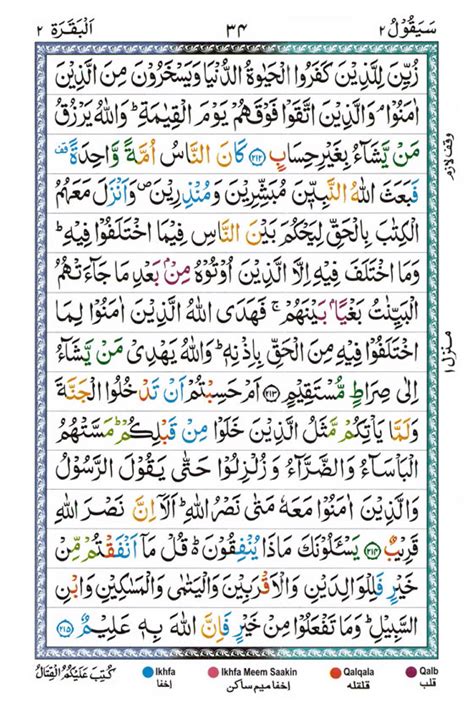 سَيَقُوۡلُ ٢ ٣٤ اَلۡبَقَرَة ٢
زُيِّنَ لِلَّذِيۡنَ كَفَرُوا الۡحَيٰوةُ الدُّنۡيَا وَيَسۡخَرُوۡنَ مِنَ الَّذِيۡنَ
اٰمَنُوۡا ۘ وَالَّذِيۡنَ اتَّقَوۡا فَوۡقَهُمۡ يَوۡمَ الۡقِيٰمَةِ ؕ وَاللّٰهُ يَرۡزُقُ
مَنۡ يَّشَآءُ بِغَيۡرِ حِسَابٍ ﴿۲۱۲﴾ كَانَ النَّاسُ اُمَّةً وَّاحِدَةً قف
فَبَعَثَ اللّٰهُ النَّبِيّٖنَ مُبَشِّرِيۡنَ وَمُنۡذِرِيۡنَ ۪ وَاَنۡزَلَ مَعَهُمُ
الۡكِتٰبَ بِالۡحَقِّ لِيَحۡكُمَ بَيۡنَ النَّاسِ فِيۡمَا اخۡتَلَفُوۡا فِيۡهِ ؕ
وَمَا اخۡتَلَفَ فِيۡهِ اِلَّا الَّذِيۡنَ اُوۡتُوۡهُ مِنۡۢ بَعۡدِ مَا جَآءَتۡهُمُ
الۡبَيِّنٰتُ بَغۡيًاۢ بَيۡنَهُمۡ ۚ فَهَدَى اللّٰهُ الَّذِيۡنَ اٰمَنُوۡا لِمَا
اخۡتَلَفُوۡا فِيۡهِ مِنَ الۡحَقِّ بِاِذۡنِهٖ ؕ وَاللّٰهُ يَهۡدِىۡ مَنۡ يَّشَآءُ
اِلٰى صِرَاطٍ مُّسۡتَقِيۡمٍ ﴿۲۱۳﴾ اَمۡ حَسِبۡتُمۡ اَنۡ تَدۡخُلُوا الۡجَنَّةَ
وَلَمَّا يَاۡتِكُمۡ مَّثَلُ الَّذِيۡنَ خَلَوۡا مِنۡ قَبۡلِكُمۡ ؕ مَسَّتۡهُمُ
الۡبَاۡسَآءُ وَالضَّرَّآءُ وَزُلۡزِلُوۡا حَتّٰى يَقُوۡلَ الرَّسُوۡلُ
وَالَّذِيۡنَ اٰمَنُوۡا مَعَهٗ مَتٰى نَصۡرُ اللّٰهِ ؕ اَلَاۤ اِنَّ نَصۡرَ اللّٰهِ
قَرِيۡبٌ ﴿۲۱۴﴾ يَسۡـَٔلُوۡنَكَ مَاذَا يُنۡفِقُوۡنَ ؕ قُلۡ مَآ اَنۡفَقۡتُمۡ مِّنۡ
خَيۡرٍ فَلِلۡوَالِدَيۡنِ وَالۡاَقۡرَبِيۡنَ وَالۡيَتٰمٰى وَالۡمَسٰكِيۡنِ وَابۡنِ
السَّبِيۡلِ ؕ وَمَا تَفۡعَلُوۡا مِنۡ خَيۡرٍ فَاِنَّ اللّٰهَ بِهٖ عَلِيۡمٌ ﴿۲۱۵﴾
وقف لازم
منزل ۱
كُتِبَ عَلَيۡكُمُ الۡقِتَالُ
Ikhfa Ikhfa Meem Saakin Qalqala Qalb
اخفا اخفا میم ساکن قلقلہ قلب